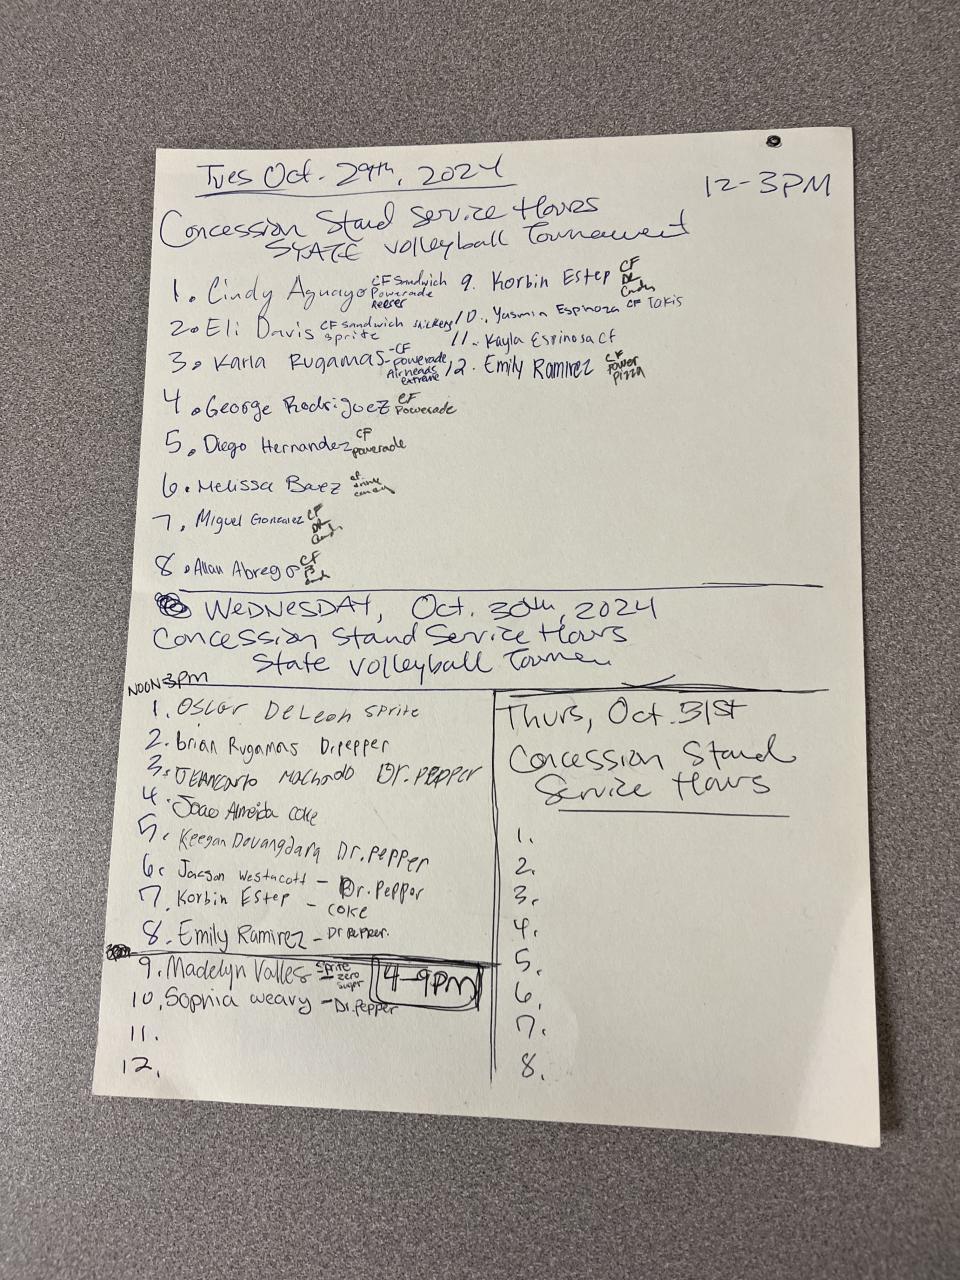 Tues Oct. 29th, 2024
12-3PM
Concession Stand Service Hours
STATE Volleyball Tournament
1. Cindy Aguayo CF Sandwich Powerade Reeses
2. Eli Davis CF Sandwich Snickers Sprite
3. Karla Rugamas - CF Powerade Airheads extreme
4. George Rodriguez CF Powerade
5. Diego Hernandez CF Powerade
6. Melissa Baez CF drink candy
7. Miguel Gonzalez CF DR
8. Allan Abrego CF
9. Korbin Estep CF DR Candy
10. Yasmin Espinoza CF Takis
11. Kayla Espinosa CF
12. Emily Ramirez CF Power Pizza
WEDNESDAY, Oct. 30th, 2024
Concession Stand Service Hours
State Volleyball Tournen
NOON-3PM
1. Oscar DeLeon Sprite
2. Brian Rugamas Dr.pepper
3. Jeancarlo Machado Dr. PEPPER
4. Joao Almeida coke
5. Keegan Devangdara Dr. pepper
6. Jackson Westacott - Dr. Pepper
7. Korbin Estep - coke
8. Emily Ramirez - Dr pepper.
9. Madelyn Valles Sprite zero suger
4-9PM
10. Sophia weary - Dr. pepper
11.
12.
Thurs, Oct. 31st
Concession Stand
Service Hours
1.
2.
3.
4.
5.
6.
7.
8.